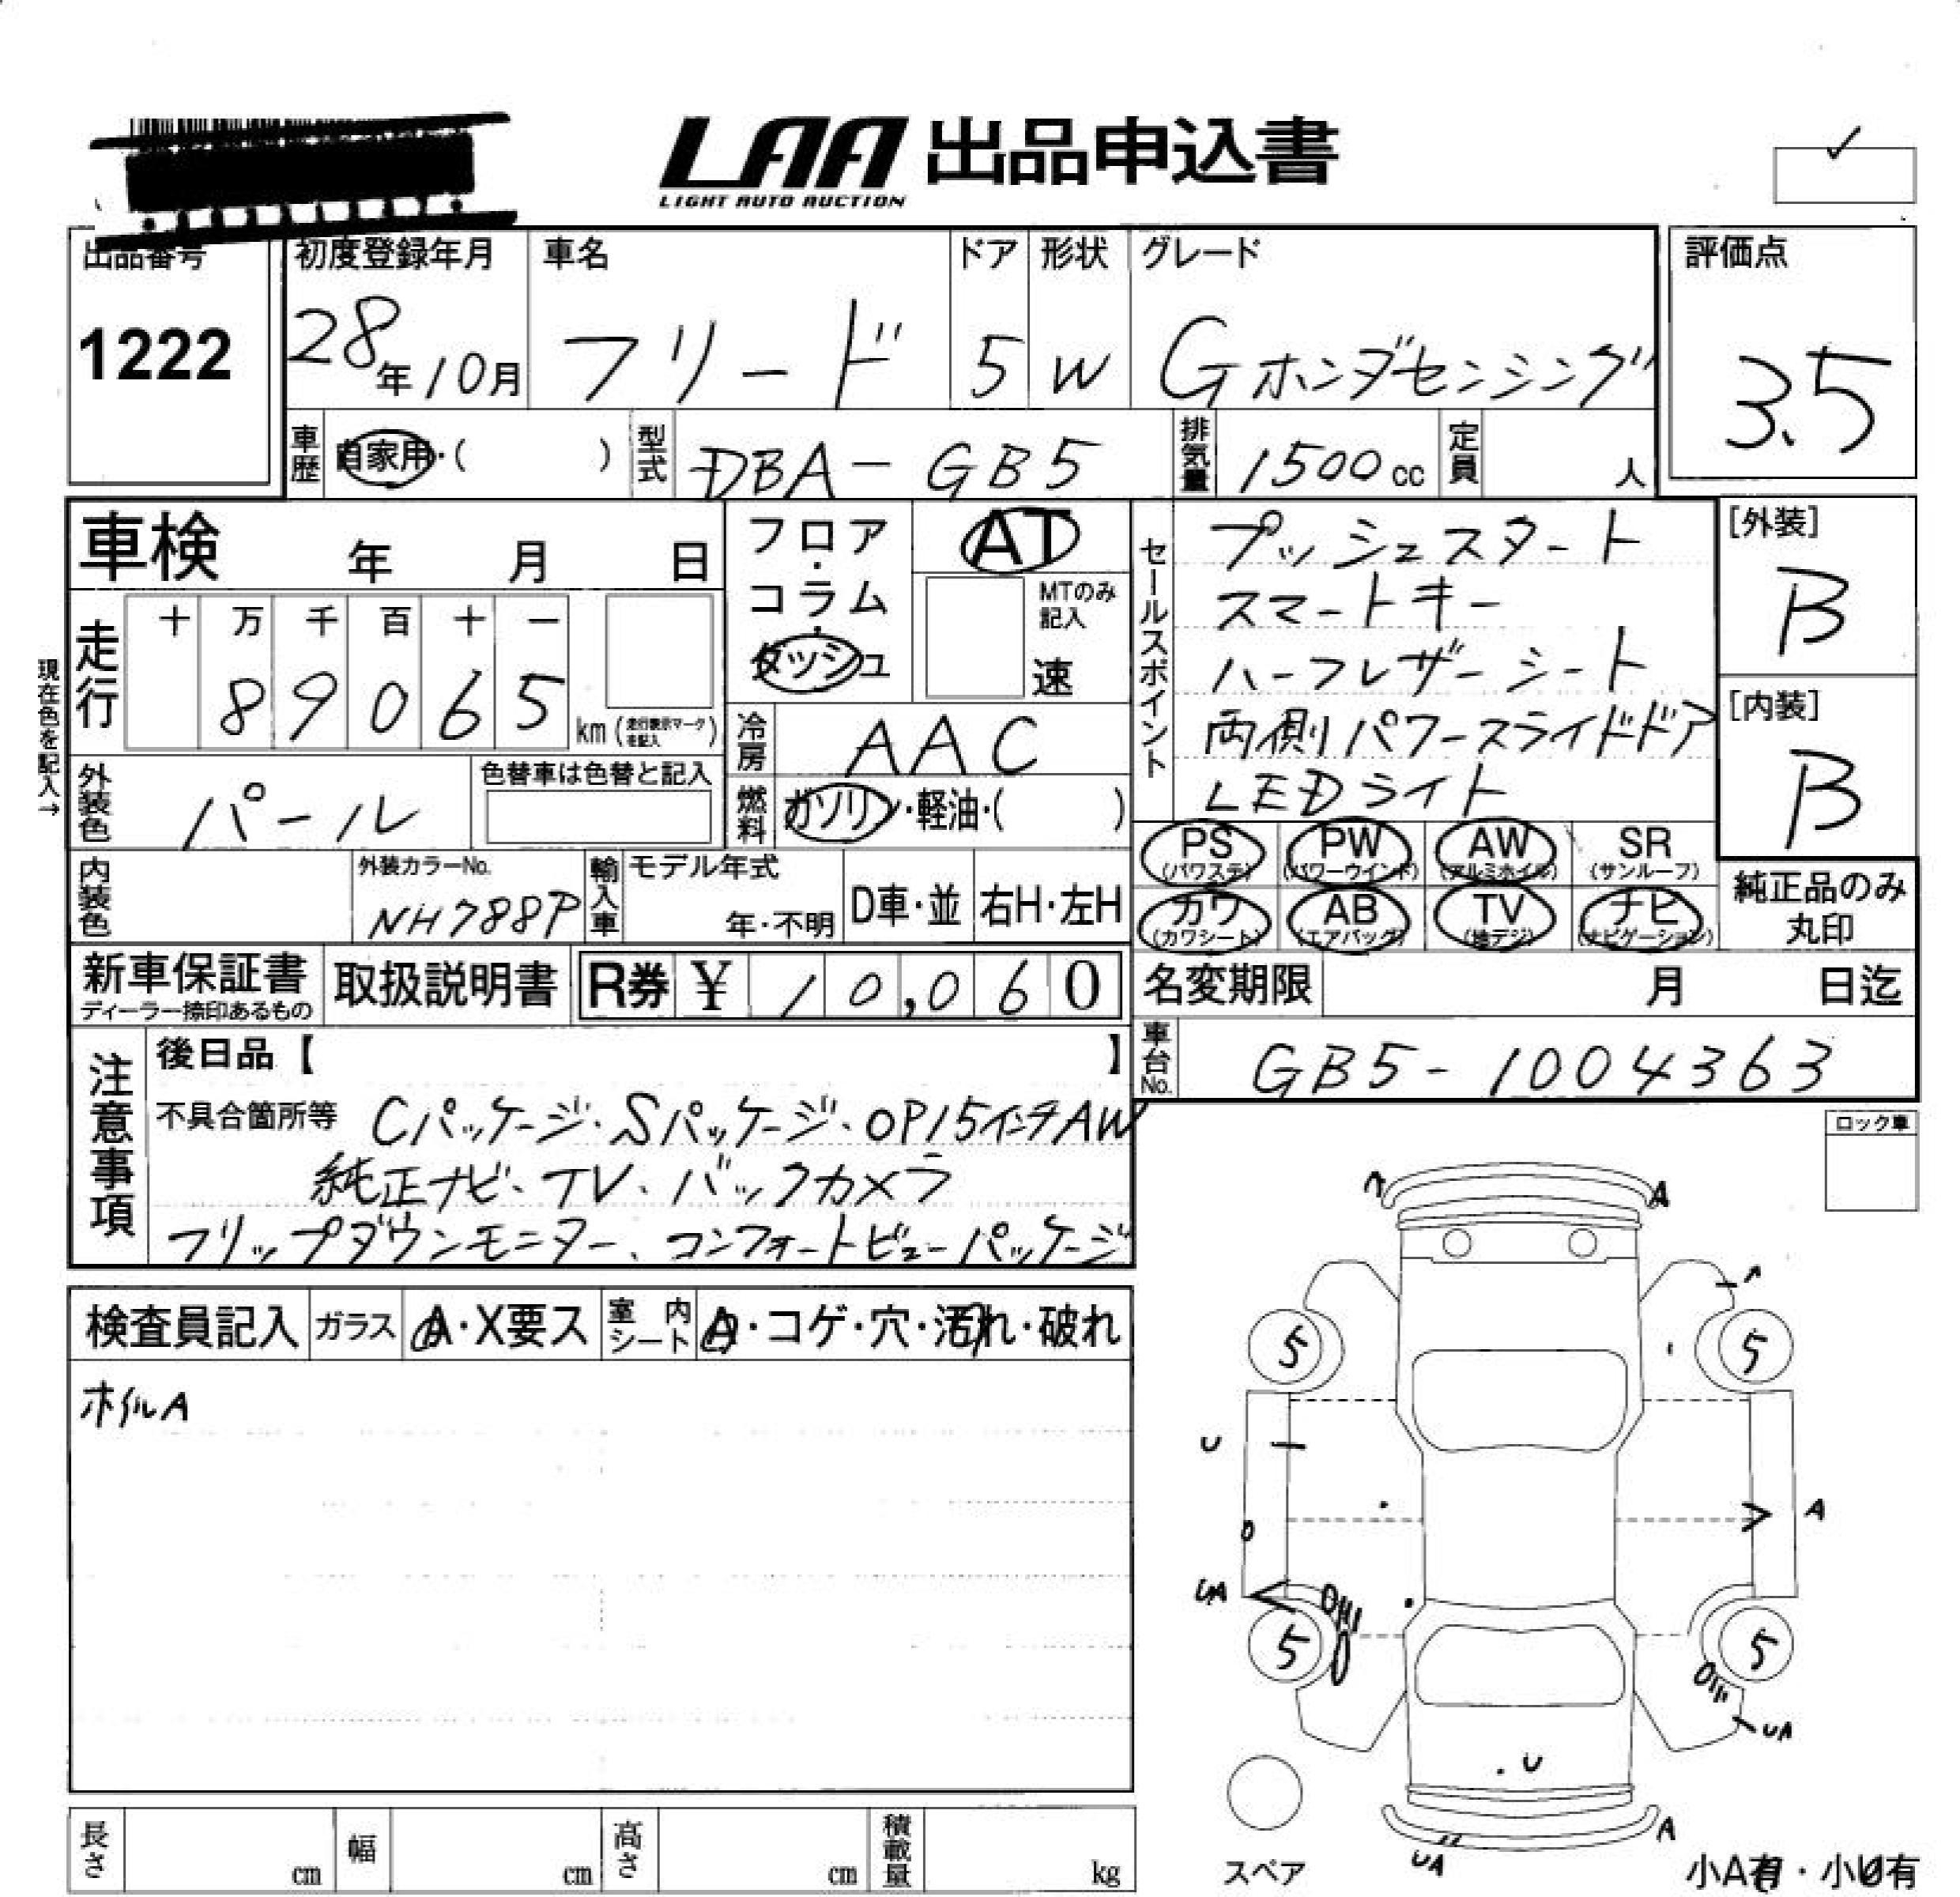 LAA 出品申込書
LIGHT AUTO AUCTION
出品番号 初度登録年月 車名 ドア 形状 グレード 評価点
1222 28年10月 フリード 5 W Gホンダセンシング 3.5
車歴 自家用・( ) 型式 DBA-GB5 排気量 1500cc 定員 人
車検 年 月 日
フロア・コラム・ダッシュ AT
MTのみ記入 速
セールスポイント
プッシュスタート
スマートキー
ハーフレザーシート
両側パワースライドドア
LEDライト
[外装]
B
[内装]
B
現在色を記入→
走行 十 万 千 百 十 一
89065 km (走行表示マークを記入)
冷房 AAC
外装色 パール 色替車は色替と記入
燃料 ガソリン・軽油・( )
PS (パワステ) PW (パワーウインド) AW (アルミホイル) SR (サンルーフ)
カワ (カワシート) AB (エアバッグ) TV (地デジ) ナビ (ナビゲーション)
純正品のみ丸印
内装色 外装カラーNo. NH788P 輸入車 モデル年式 年・不明 D車・並 右H・左H
新車保証書 ディーラー捺印あるもの 取扱説明書 R券 ¥ 10,060
名変期限 月 日迄
車台No. GB5-1004363
注意事項
後日品【 】
不具合箇所等 Cパッケージ・Sパッケージ、OP15インチAW
純正ナビ、TV、バックカメラ
フリップダウンモニター、コンフォートビューパッケージ
ロック車
検査員記入 ガラス A・X要ス 室内シート A・コゲ・穴・汚れ・破れ
ホイルA
A
5 5
U
A
UA
5 5
UA
U
A
UA
スペア
小A有・小U有
長さ cm 幅 cm 高さ cm 積載量 kg